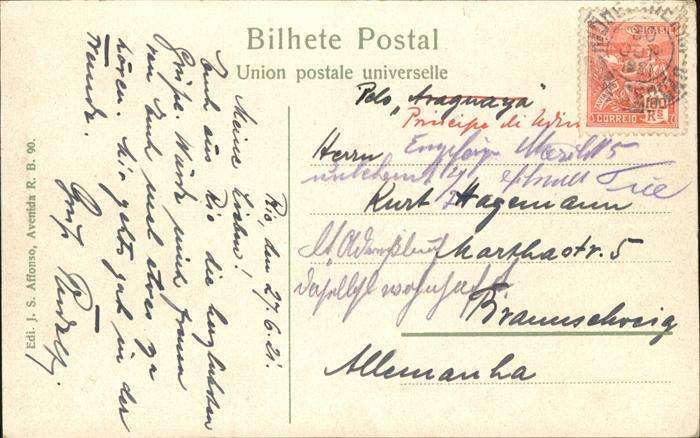 Bilhete Postal
Union postale universelle
Edi. J. S. Affonso, Avenida R. B. 90.
Rio, den 27.6.21.
Meine Lieben!
Euch aus Rio die herzlichsten
Grüße. Würde mich freuen
von Euch mal etwas zu
hören. Mir geht's gut in der
Gruß Rudolf.
Pelo "Araguaya"
Principe di Udine
Herrn Empfänger
unbekannt
Kurt Hagemann
Marthastr. 5
daselbst wohnhaft
Braunschweig
Allemanha
BRASIL
CORREIO
100 Rs